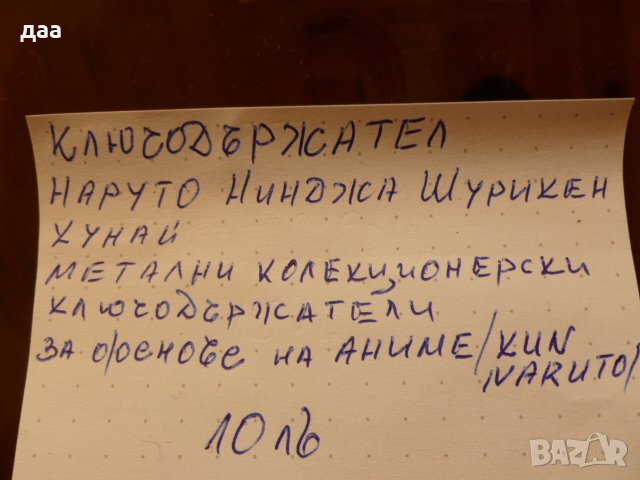 даа
КЛЮЧОДЪРЖАТЕЛ
НАРУТО НИНДЖА ШУРИКЕН
КУНАЙ
МЕТАЛНИ КОЛЕКЦИОНЕРСКИ
КЛЮЧОДЪРЖАТЕЛИ
ЗА НА АНИМЕ/KUN
NARUTO/
10 лв
BAZAR